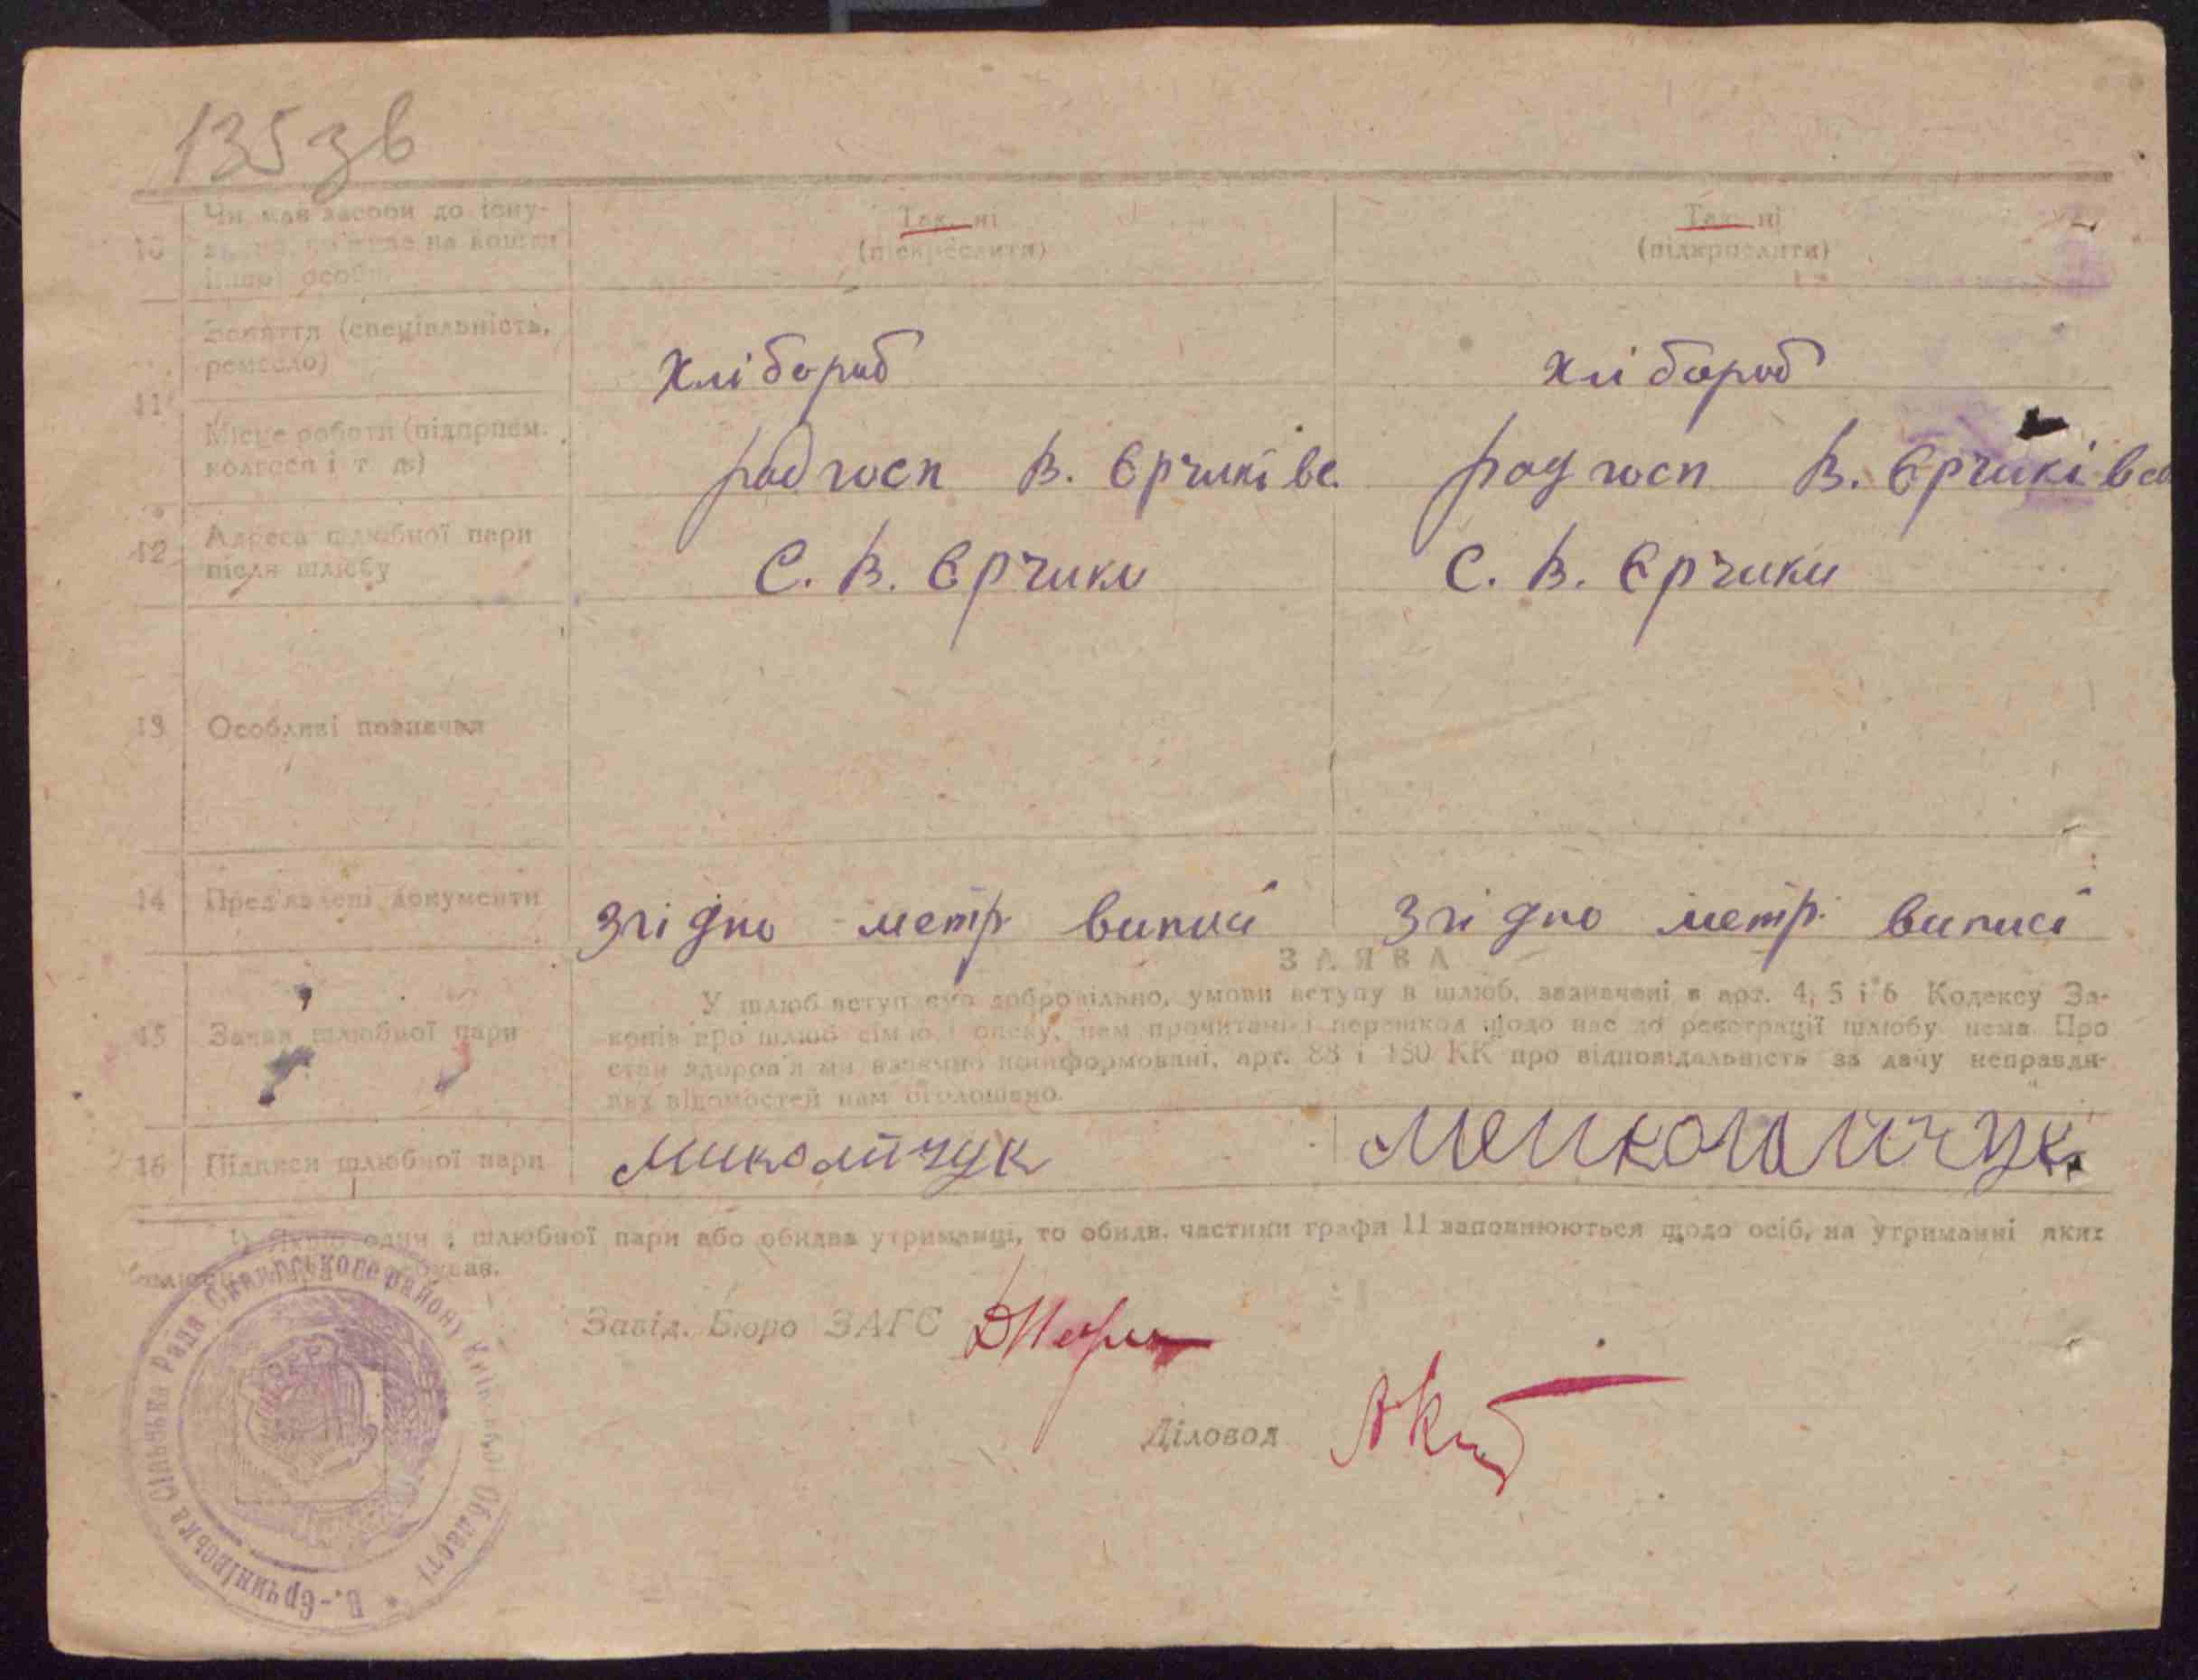 135 зв
10 Чи мав засоби до існу-
на кошти
іншої особи.
Так. ні
(підкреслити)
Так. ні
(підкреслити)
11 Заняття (спеціальність,
ремесло)
Хлібороб
Хлібороб
Місце роботи (підприєм.
колгосп і т д.)
радгосп В. Єрчиківс.
радгосп В. Єрчиківсь
12 Адреса шлюбної пари
після шлюбу
С. В. Єрчики
С. В. Єрчики
13 Особливі позначки
14 Пред'явлені документи
Згідно метр виписі
Згідно метр. виписі
15 Заява шлюбної пари
ЗАЯВА
У шлюб вступаємо добровільно, умови вступу в шлюб, зазначені в арт. 4, 5 і 6 Кодексу За-
конів про шлюб сім'ю і опіку, нам прочитані і перешкод щодо нас до реєстрації шлюбу нема Про
стан здоров'я ми взаємно поінформовані, арт. 88 і 180 КК про відповідальність за дачу неправди-
вих відомостей нам оголошено.
16 Підписи шлюбної пари
Миколайчук
Менколайчук
1) Якщо один з шлюбної пари або обидва утриманці, то обидв. частини графи 11 заповнюються щодо осіб, на утриманні яких
шлюбна пара
Завід. Бюро ЗАГС
Діловод
В.-Єрчиківська Сільська Рада Сквирського району Київської Області